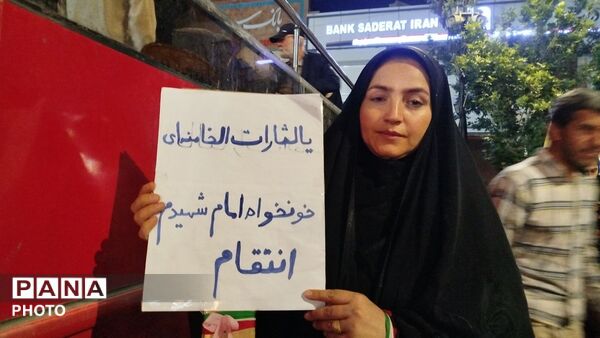 BANK SADERAT IRAN
یالثارات الخامنه‌ای
خونخواه امام شهیدم
انتقام
PANA
PHOTO